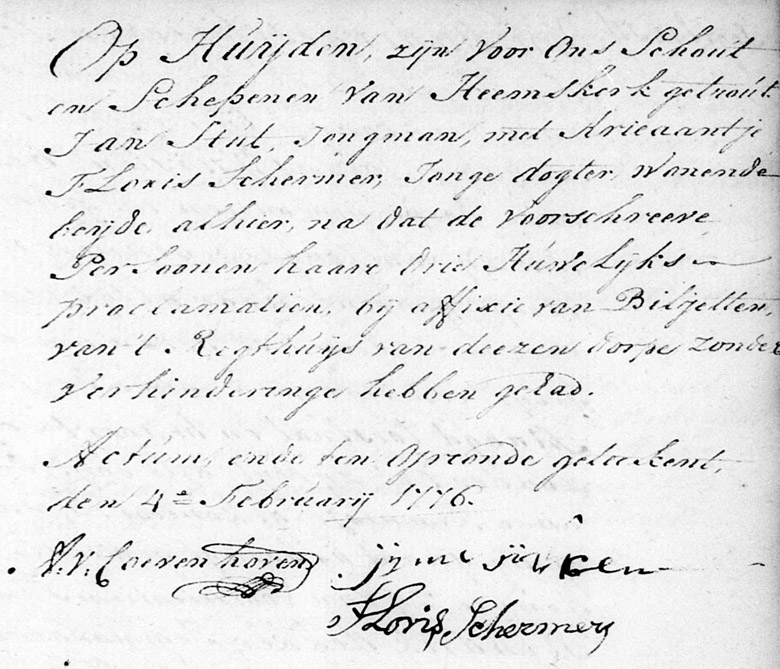 Op Huijden, zijn Voor Ons Schout
en Schepenen van Heemskerk getrout
Jan Stut, Jongman, met Arieaantje
Floris Schermer, Jonge dogter, Wonende
beijde alhier, na dat de Voorschreeve
Persoonen haare drie Húwelijks
proclamatien, bij affixie van Biljetten,
van't Regthuijs van deezen dorpe zonder
Verhinderinge hebben gehad.
Actum, ende ten Oirconde geteekent,
den 4e Februarij 1776.
V. V. Coevenhoven
Floris Schermer